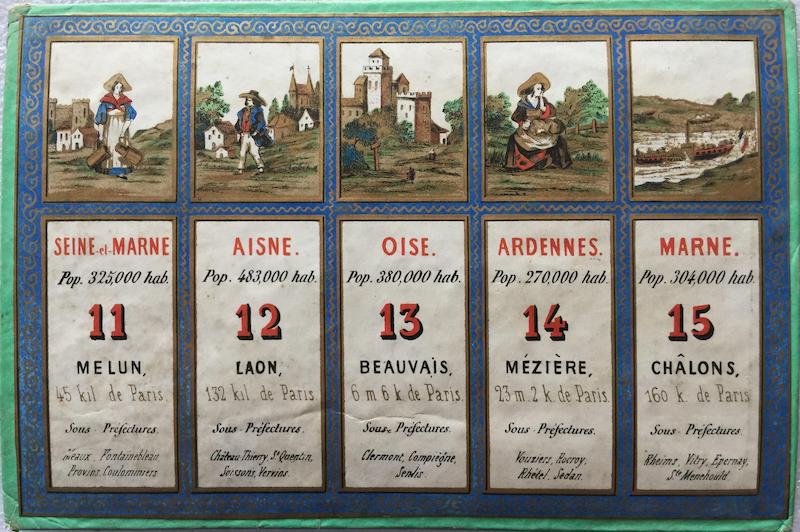 SEINE-et-MARNE
Pop. 325,000 hab.
11
MELUN,
45 kil de Paris.
Sous-Préfectures.
Meaux, Fontainebleau
Provins, Coulommiers
AISNE.
Pop. 483,000 hab.
12
LAON,
132 kil. de Paris.
Sous-Préfectures.
Château Thierry, St Quentin,
Soissons, Vervins.
OISE.
Pop. 380,000 hab.
13
BEAUVAIS,
6 m 6 k de Paris.
Sous-Préfectures.
Clermont, Compiègne,
Senlis
ARDENNES.
Pop. 270,000 hab.
14
MÉZIÈRE,
23 m. 2 k. de Paris.
Sous-Préfectures.
Vouziers, Rocroy,
Rhétel, Sedan.
MARNE.
Pop. 304,000 hab.
15
CHÂLONS,
160 k. de Paris
Sous-Préfectures.
Rheims, Vitry, Epernay,
Ste Menehould